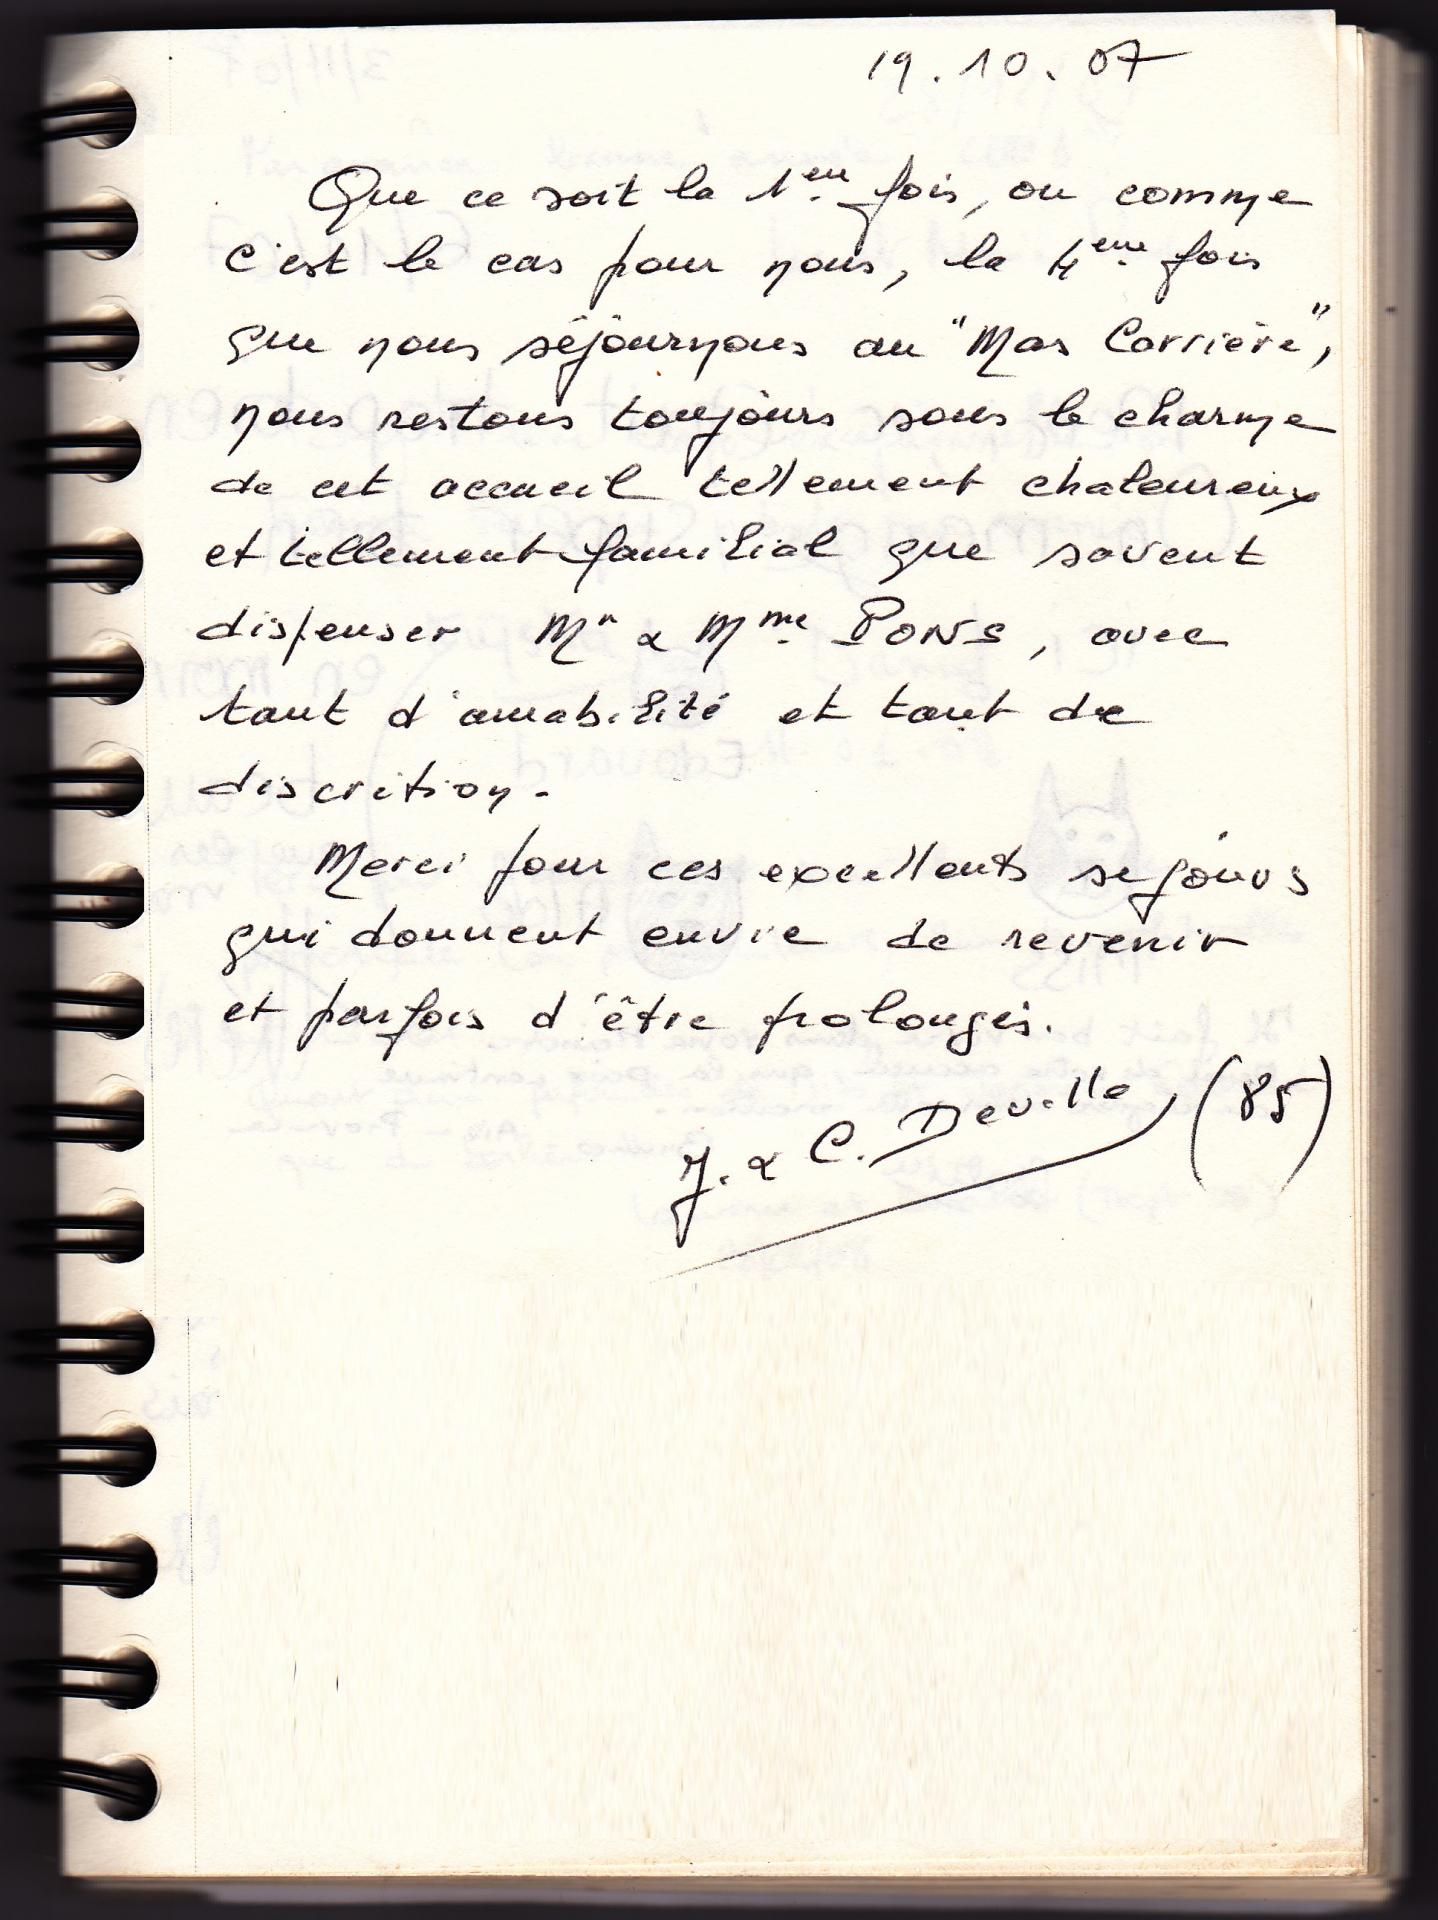 19.10.07
Que ce soit la 1ère fois, ou comme
c'est le cas pour nous, la 4ème fois
que nous séjournons au "Mas Carrière",
nous restons toujours sous le charme
de cet accueil tellement chaleureux
et tellement familial que savent
dispenser Mr & Mme PONS, avec
tant d'amabilité et tant de
discrition.
Merci pour ces excellents sejours
qui donnent envie de revenir
et parfois d'être prolongés.
J. & C. Deville (85)